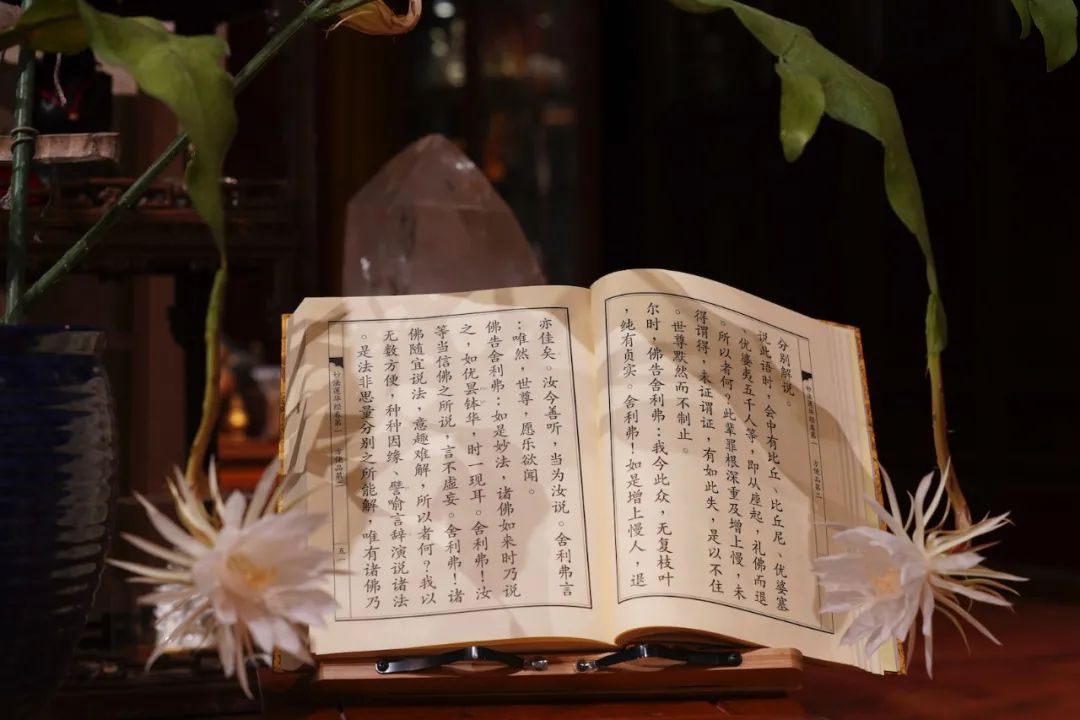 妙法莲华经卷第一 方便品第二
分别解说。
说此语时，会中有比丘、比丘尼、优婆塞
、优婆夷五千人等，即从座起，礼佛而退
。所以者何？此辈罪根深重及增上慢，未
得谓得，未证谓证，有如此失，是以不住
。世尊默然而不制止。
尔时，佛告舍利弗：我今此众，无复枝叶
，纯有贞实。舍利弗！如是增上慢人，退
亦佳矣。汝今善听，当为汝说。舍利弗言
：唯然，世尊，愿乐欲闻。
佛告舍利弗：如是妙法，诸佛如来时乃说
之，如优昙钵华，时一现耳。舍利弗！汝
等当信佛之所说，言不虚妄。舍利弗！诸
佛随宜说法，意趣难解，所以者何？我以
无数方便，种种因缘、譬喻言辞演说诸法
。是法非思量分别之所能解，唯有诸佛乃
妙法莲华经卷第一 方便品第二 五一